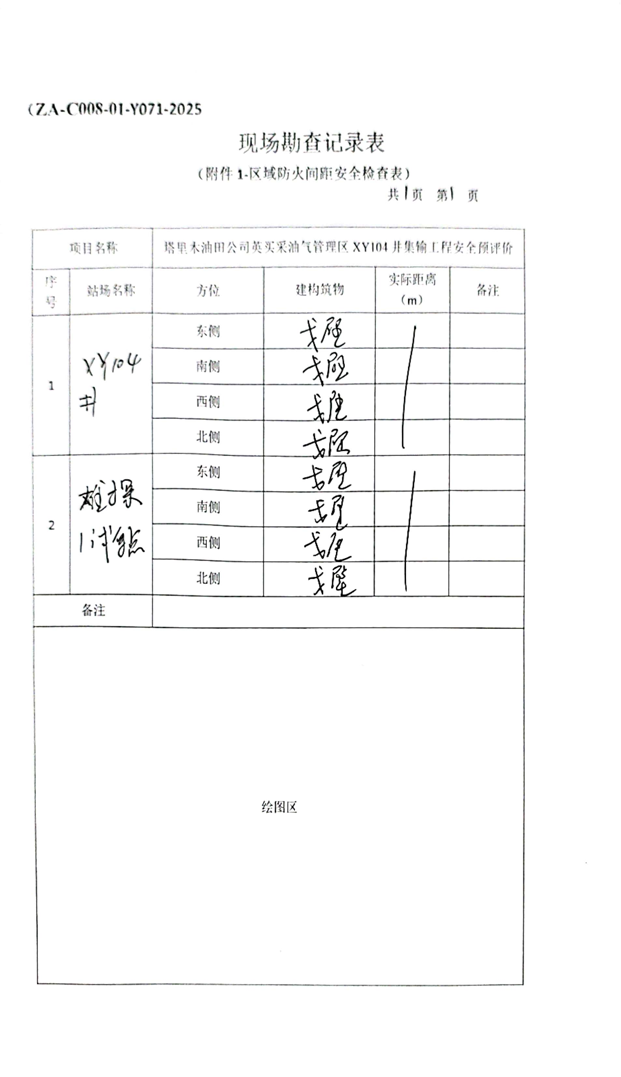 (ZA-C008-01-Y071-2025
现场勘查记录表
(附件1-区域防火间距安全检查表)
共1页 第1页
项目名称 塔里木油田公司英买采油气管理区XY104井集输工程安全预评价
序号 站场名称 方位 建构筑物 实际距离(m) 备注
1 XY104井 东侧 戈壁
南侧 戈壁
西侧 戈壁
北侧 戈壁
2 雄探1试采点 东侧 戈壁
南侧 戈壁
西侧 戈壁
北侧 戈壁
备注
绘图区